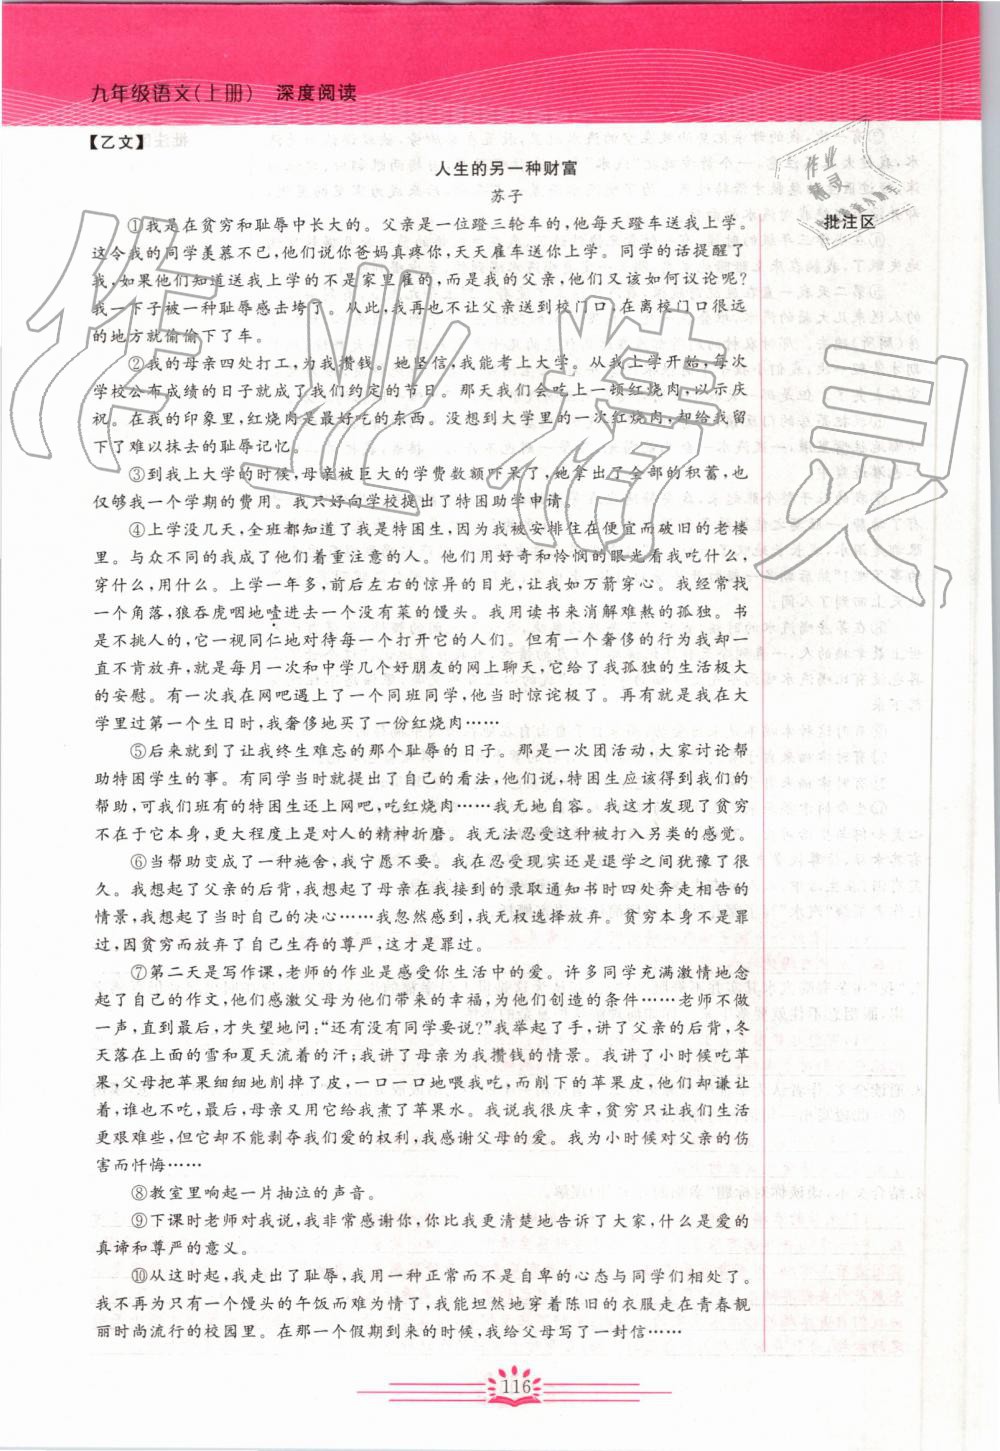 九年级语文(上册) 深度阅读
【乙文】
人生的另一种财富
苏子
批注区
①我是在贫穷和耻辱中长大的。父亲是一位蹬三轮车的,他每天蹬车送我上学。
这令我的同学羡慕不已,他们说你爸妈真疼你,天天雇车送你上学。同学的话提醒了
我,如果他们知道送我上学的不是家里雇的,而是我的父亲,他们又该如何议论呢?
我一下子被一种耻辱感击垮了。从此,我再也不让父亲送到校门口,在离校门口很远
的地方就偷偷下了车。
②我的母亲四处打工,为我攒钱。她坚信,我能考上大学。从我上学开始,每次
学校公布成绩的日子就成了我们约定的节日。那天我们会吃上一顿红烧肉,以示庆
祝。在我的印象里,红烧肉是最好吃的东西。没想到大学里的一次红烧肉,却给我留
下了难以抹去的耻辱记忆。
③到我上大学的时候,母亲被巨大的学费数额吓呆了,她拿出了全部的积蓄,也
仅够我一个学期的费用。我只好向学校提出了特困助学申请。
④上学没几天,全班都知道了我是特困生,因为我被安排住在便宜而破旧的老楼
里。与众不同的我成了他们着重注意的人。他们用好奇和怜悯的眼光看我吃什么,
穿什么,用什么。上学一年多,前后左右的惊异的目光,让我如万箭穿心。我经常找
一个角落,狼吞虎咽地噎进去一个没有菜的馒头。我用读书来消解难熬的孤独。书
是不挑人的,它一视同仁地对待每一个打开它的人们。但有一个奢侈的行为我却一
直不肯放弃,就是每月一次和中学几个好朋友的网上聊天,它给了我孤独的生活极大
的安慰。有一次我在网吧遇上了一个同班同学,他当时惊诧极了。再有就是我在大
学里过第一个生日时,我奢侈地买了一份红烧肉……
⑤后来就到了让我终生难忘的那个耻辱的日子。那是一次团活动,大家讨论帮
助特困学生的事。有同学当时就提出了自己的看法,他们说,特困生应该得到我们的
帮助,可我们班有的特困生还上网吧,吃红烧肉……我无地自容。我这才发现了贫穷
不在于它本身,更大程度上是对人的精神折磨。我无法忍受这种被打入另类的感觉。
⑥当帮助变成了一种施舍,我宁愿不要。我在忍受现实还是退学之间犹豫了很
久。我想起了父亲的后背,我想起了母亲在我接到的录取通知书时四处奔走相告的
情景,我想起了当时自己的决心……我忽然感到,我无权选择放弃。贫穷本身不是罪
过,因贫穷而放弃了自己生存的尊严,这才是罪过。
⑦第二天是写作课,老师的作业是感受你生活中的爱。许多同学充满激情地念
起了自己的作文,他们感激父母为他们带来的幸福,为他们创造的条件……老师不做
一声,直到最后,才失望地问:“还有没有同学要说?”我举起了手,讲了父亲的后背,冬
天落在上面的雪和夏天流着的汗;我讲了母亲为我攒钱的情景。我讲了小时候吃苹
果,父母把苹果细细地削掉了皮,一口一口地喂我吃,而削下的苹果皮,他们却谦让
着,谁也不吃,最后,母亲又用它给我煮了苹果水。我说我很庆幸,贫穷只让我们生活
更艰难些,但它却不能剥夺我们爱的权利,我感谢父母的爱。我为小时候对父亲的伤
害而忏悔……
⑧教室里响起一片抽泣的声音。
⑨下课时老师对我说,我非常感谢你,你比我更清楚地告诉了大家,什么是爱的
真谛和尊严的意义。
⑩从这时起,我走出了耻辱,我用一种正常而不是自卑的心态与同学们相处了。
我不再为只有一个馒头的午饭而难为情了,我能坦然地穿着陈旧的衣服走在青春靓
丽时尚流行的校园里。在那一个假期到来的时候,我给父母写了一封信……
116
作业精灵